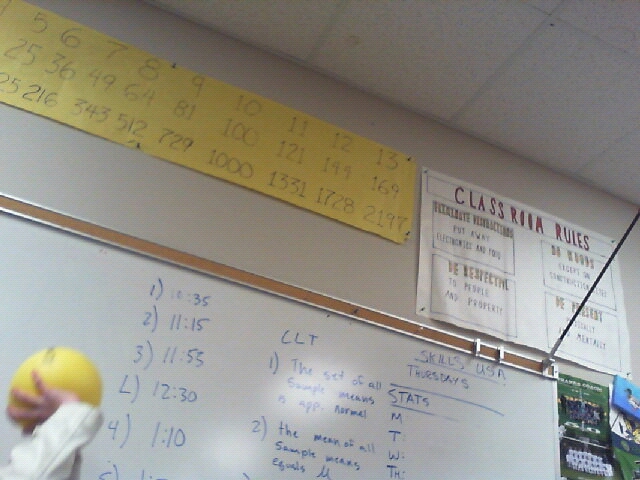 5 6 7 8 9 10 11 12 13
25 36 49 64 81 100 121 144 169
25 216 343 512 729 1000 1331 1728 2197
CLASSROOM RULES
ELIMINATE DISTRACTIONS
PUT AWAY
ELECTRONICS AND FOOD
BE RESPECTFUL
TO PEOPLE
AND PROPERTY
NO HOODS
EXCEPT ON
CONSTRUCTION SITES
BE PRESENT
PHYSICALLY
MENTALLY
1) 10:35
2) 11:15
3) 11:55
L) 12:30
4) 1:10
CLT
1) The set of all
sample means
is app. normal
2) the mean of all
sample means
equals μ
SKILLS USA
THURSDAYS
STATS
M:
T:
W:
TH: